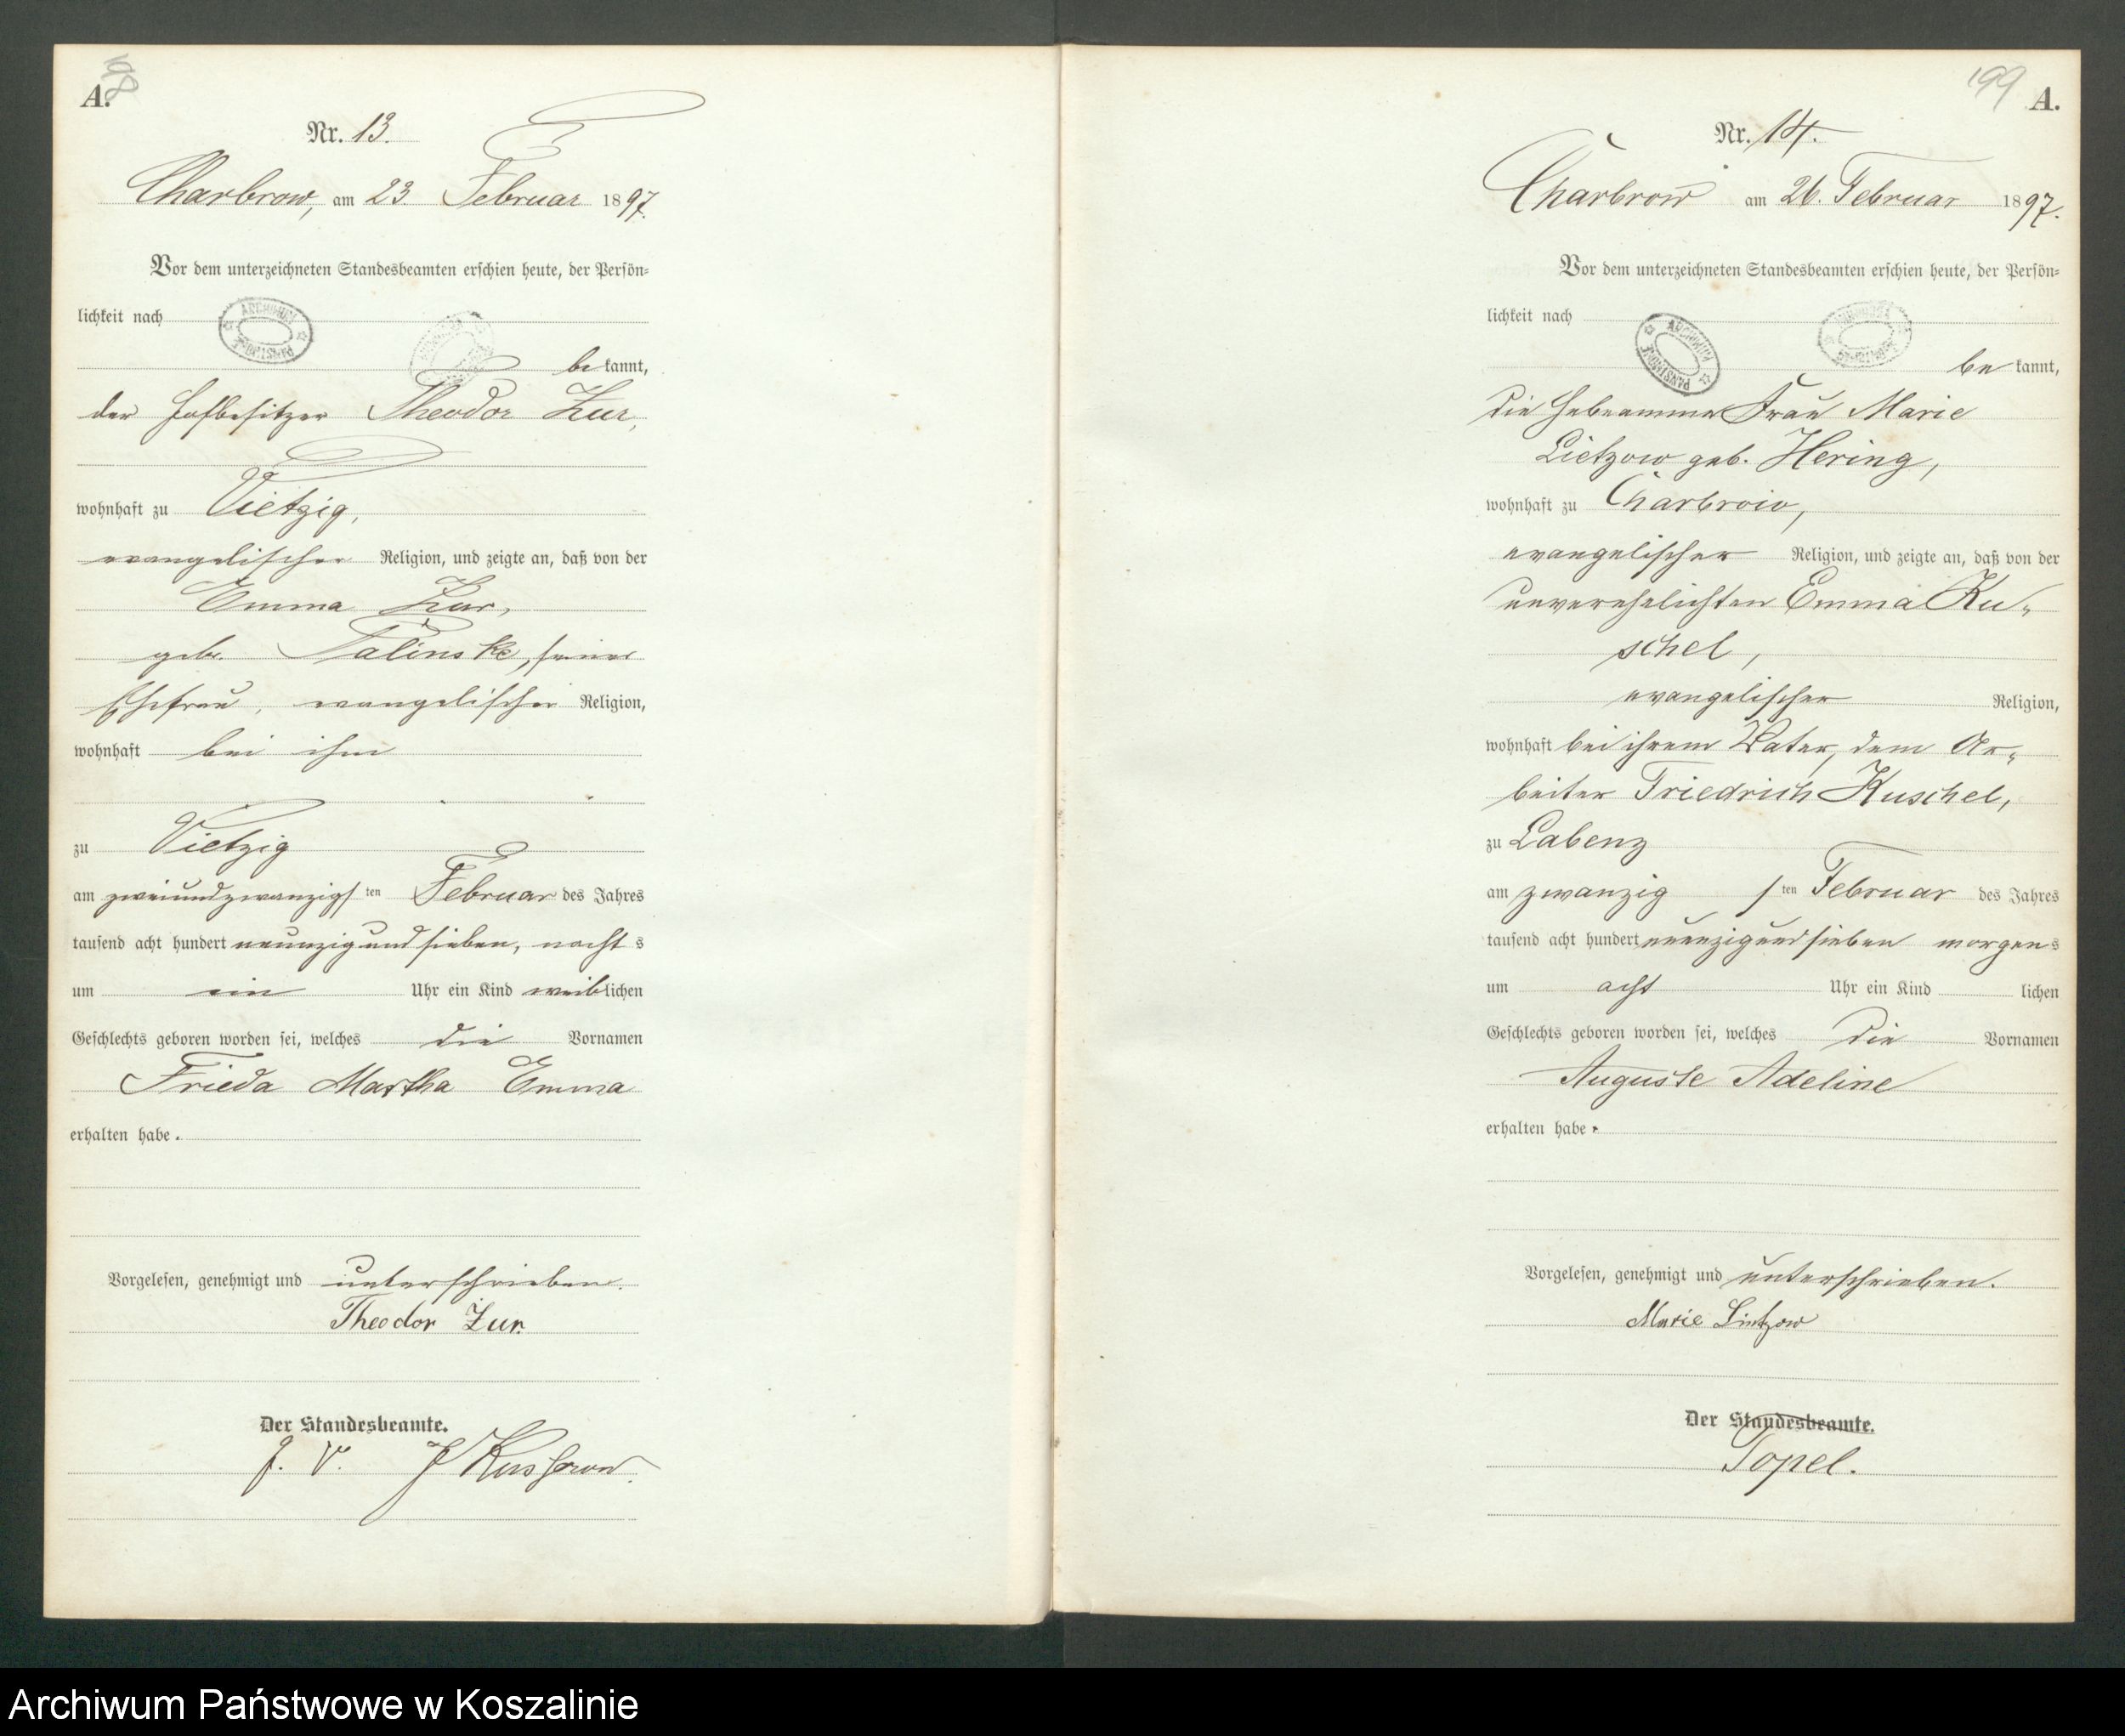 A.
Nr. 13.
Charbrow, am 23. Februar 1897.
Vor dem unterzeichneten Standesbeamten erschien heute, der Persön-
lichkeit nach
be kannt,
der Hofbesitzer Theodor Zur,
wohnhaft zu Vietzig,
evangelischer Religion, und zeigte an, daß von der
Emma Zur,
geb. Palinske, seiner
Ehefrau, evangelischer Religion,
wohnhaft bei ihm
zu Vietzig
am zweiundzwanzigsten Februar des Jahres
tausend acht hundert neunzig und sieben, nachts
um ein Uhr ein Kind weiblichen
Geschlechts geboren worden sei, welches die Vornamen
Frieda Martha Emma
erhalten habe.
Vorgelesen, genehmigt und unterschrieben.
Theodor Zur.
Der Standesbeamte.
J. V.
199 A.
Nr. 14.
Charbrow am 26. Februar 1897.
Vor dem unterzeichneten Standesbeamten erschien heute, der Persön-
lichkeit nach
be kannt,
die Hebeamme Frau Marie
Lietzow geb. Hering,
wohnhaft zu Charbrow,
evangelischer Religion, und zeigte an, daß von der
unverehelichten Emma Ku-
schel,
evangelischer Religion,
wohnhaft bei ihrem Vater, dem Ar-
beiter Friedrich Kuschel,
zu Labenz
am zwanzigsten Februar des Jahres
tausend acht hundert neunzig und sieben morgens
um acht Uhr ein Kind lichen
Geschlechts geboren worden sei, welches die Vornamen
Auguste Adeline
erhalten habe.
Vorgelesen, genehmigt und unterschrieben.
Marie Lietzow
Der Standesbeamte.
Topel.
Archiwum Państwowe w Koszalinie